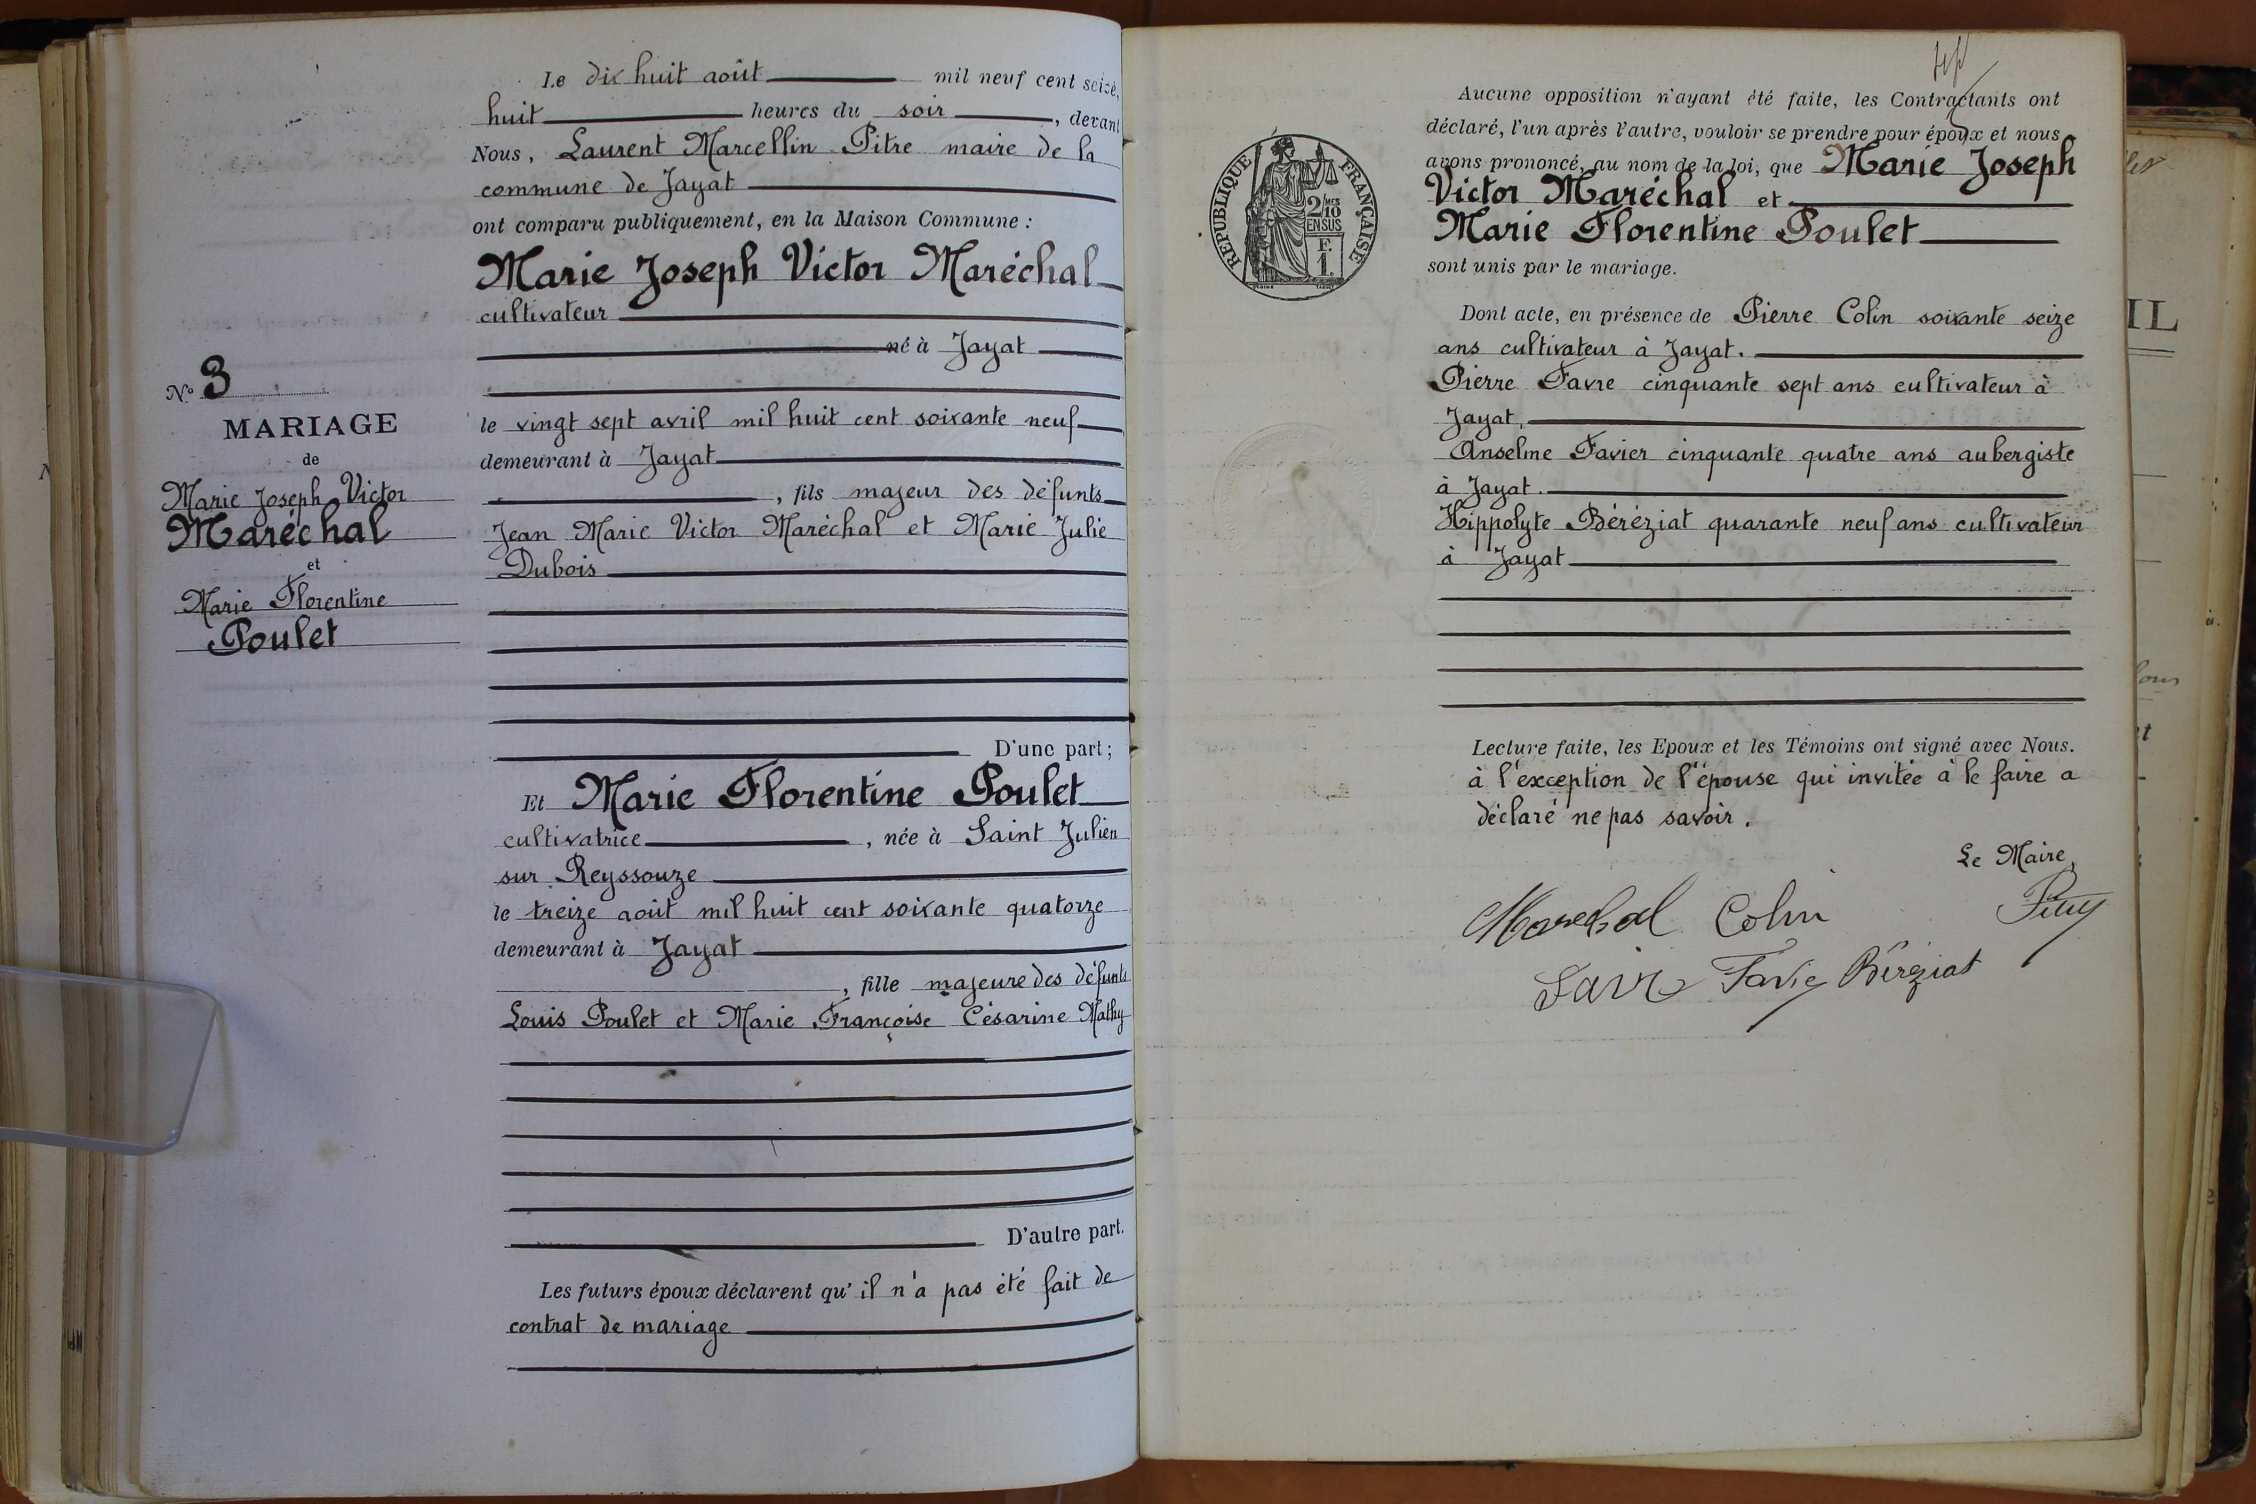 Le dix huit août mil neuf cent seize,
huit heures du soir, devant
Nous, Laurent Marcellin Pitre maire de la
commune de Jayat
ont comparu publiquement, en la Maison Commune :
Marie Joseph Victor Maréchal
cultivateur
né à Jayat
le vingt sept avril mil huit cent soixante neuf
demeurant à Jayat
, fils majeur des défunts
Jean Marie Victor Maréchal et Marie Julie
Dubois
D'une part;
Et Marie Florentine Poulet
cultivatrice, née à Saint Julien
sur Reyssouze
le treize août mil huit cent soixante quatorze
demeurant à Jayat
, fille majeure des défunts
Louis Poulet et Marie Françoise Césarine Mathy
D'autre part.
Les futurs époux déclarent qu'il n'a pas été fait de
contrat de mariage
No 3
MARIAGE
de
Marie Joseph Victor
Maréchal
et
Marie Florentine
Poulet
Aucune opposition n'ayant été faite, les Contractants ont
déclaré, l'un après l'autre, vouloir se prendre pour époux et nous
avons prononcé, au nom de la loi, que Marie Joseph
Victor Maréchal et
Marie Florentine Poulet
sont unis par le mariage.
Dont acte, en présence de Pierre Colin soixante seize
ans cultivateur à Jayat.
Pierre Favre cinquante sept ans cultivateur à
Jayat.
Anselme Favier cinquante quatre ans aubergiste
à Jayat.
Hippolyte Béréziat quarante neuf ans cultivateur
à Jayat
Lecture faite, les Epoux et les Témoins ont signé avec Nous.
à l'exception de l'épouse qui invitée à le faire a
déclaré ne pas savoir.
Le Maire,
Marechal Colin
Béréziat
RÉPUBLIQUE FRANÇAISE
2/10
EN SUS
F.
1.
IL